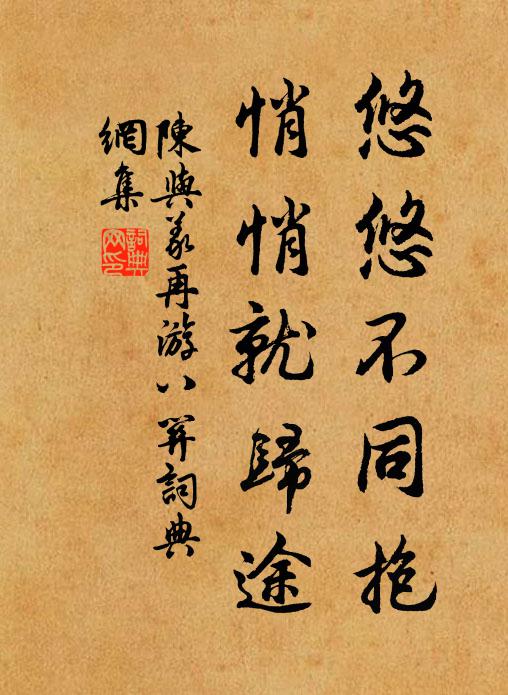 悠悠不同抱
悄悄就歸途
陳與义再游八關詞典
網集
詞典
网印